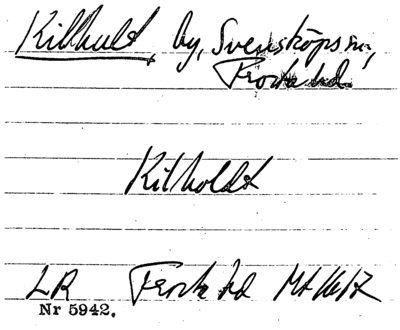 Killhult, by, Svensköps sn,
Frosta hd.
Killholdt
LR Frosta hd
Nr 5942.